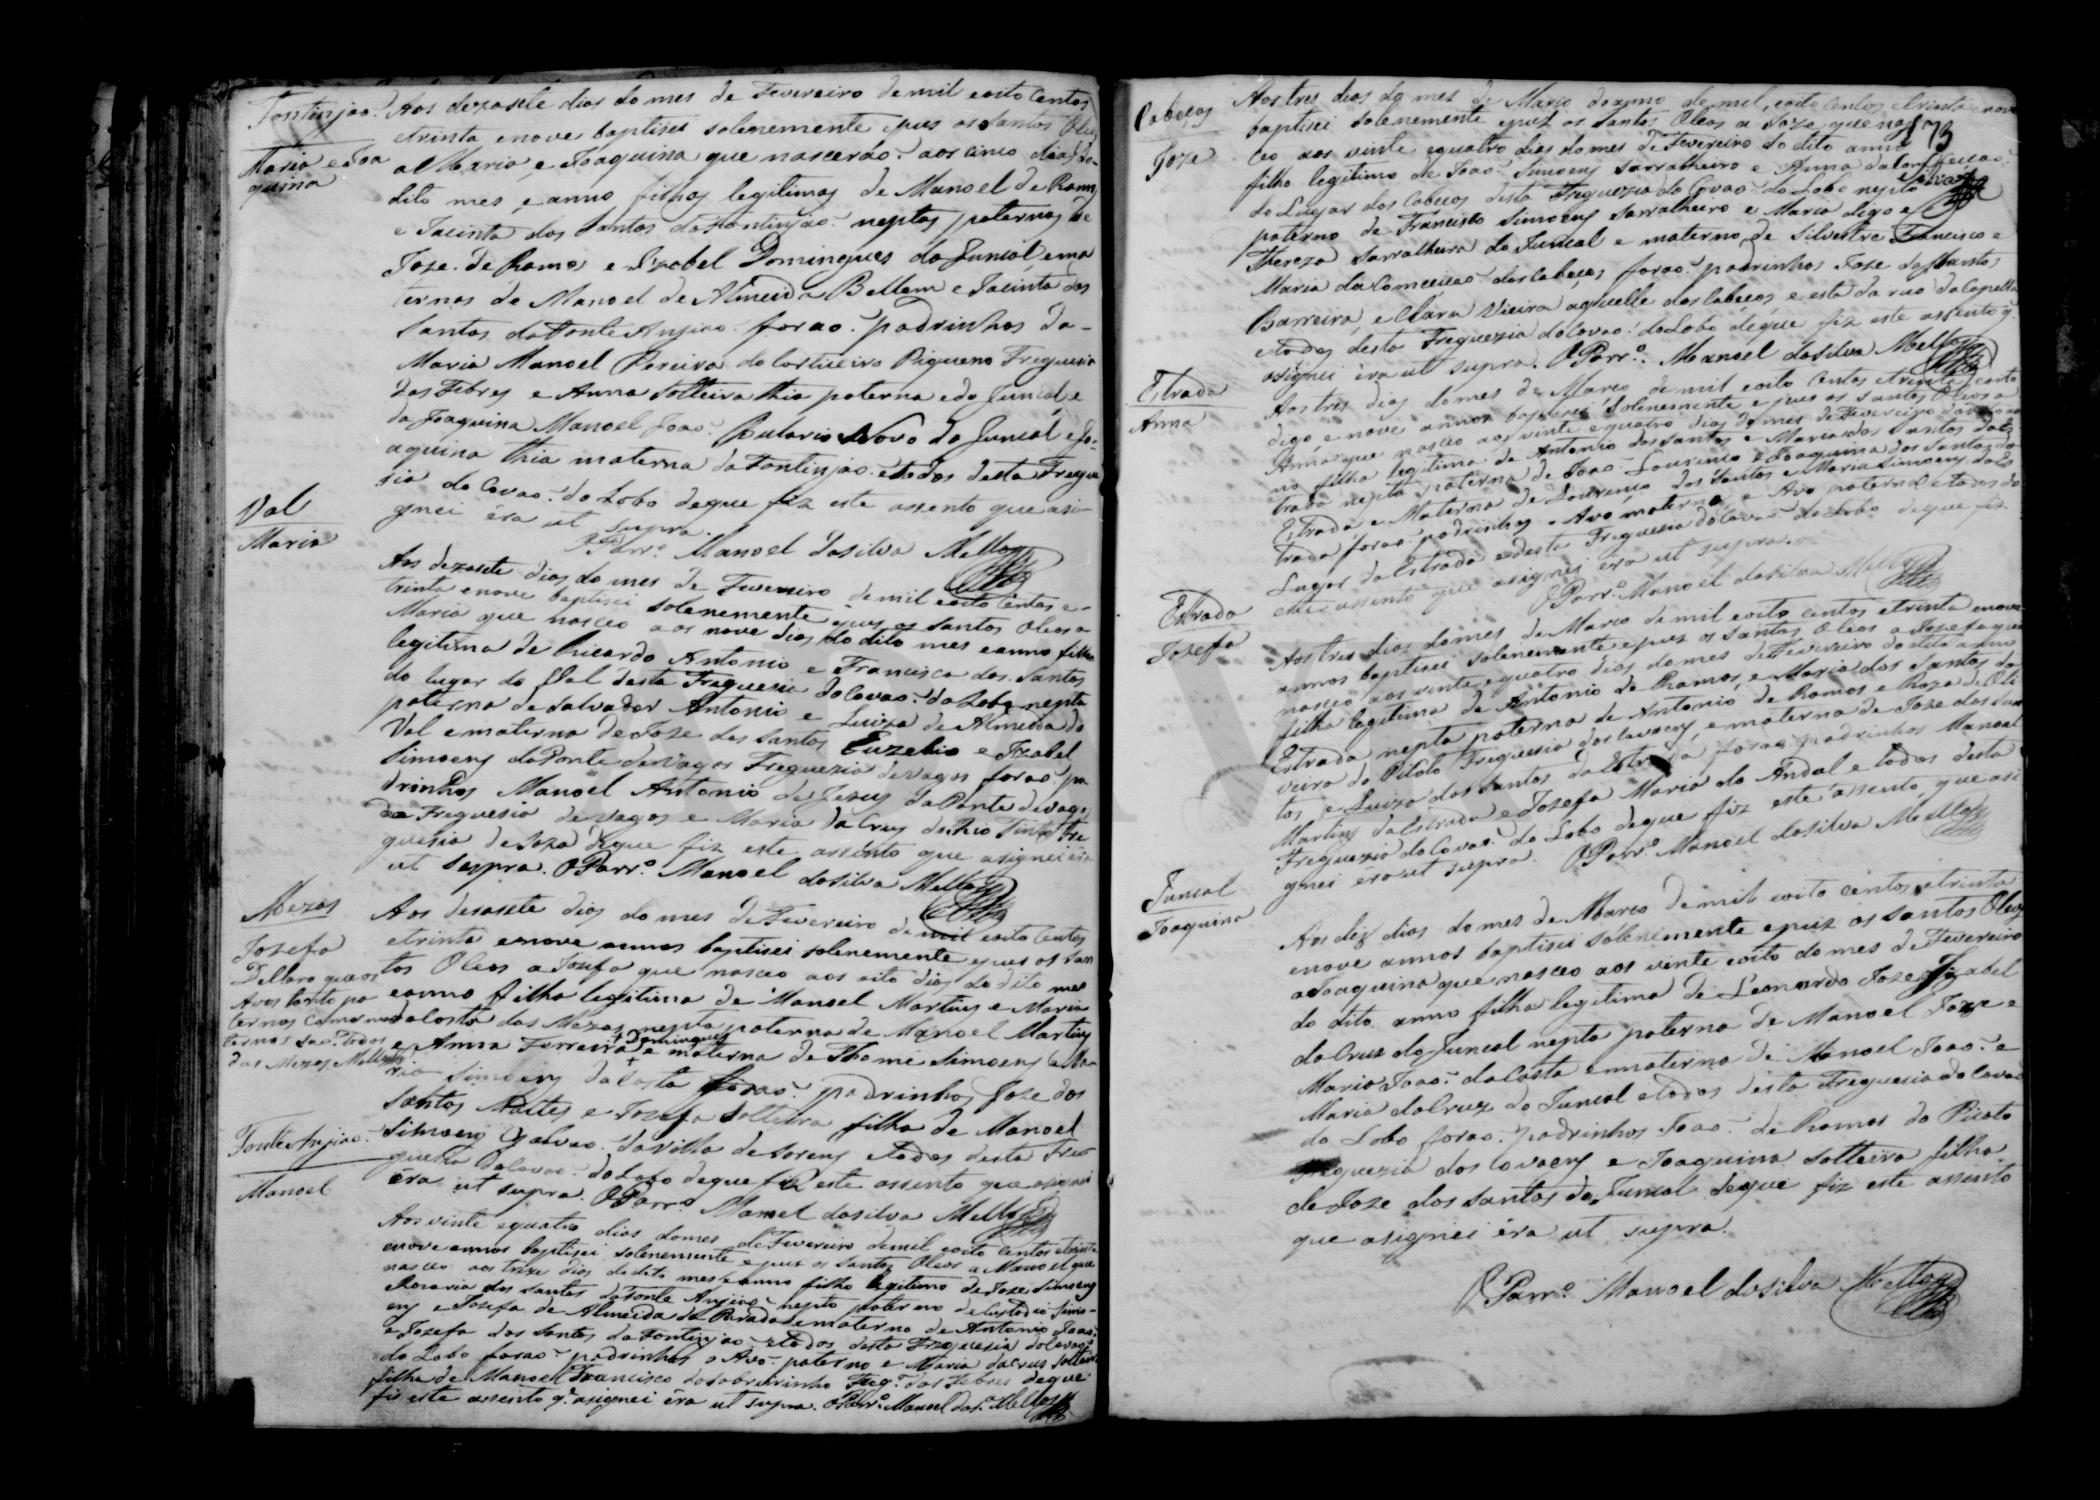 Fontinjao. Aos dezasete dias do mes de Fevereiro de mil e oito Centos
etrinta enove baptisei solenemente epus os Santos Oleos
Maria e Joa
quina
a Maria, e Joaquina que nascerão aos cinco dias do
dito mes, e anno filhas legitimas de Manoel de Ramos
e Jacinta dos Santos da Fontinjao neptas paternas de
Joze de Ramos e Izabel Domingues do Juncal, e ma
ternas de Manoel de Almeida Bellem e Jacinta dos
Santos da Fonte Anjiao forao padrinhos da
Maria Manoel Pereira do Corticeiro Piqueno Freguesia
das Febres e Anna Solteira thia paterna e do Juncal, e
da Joaquina Manoel Joao Novo do Juncal, e Jo
aquina thia materna da Fontinjao e todos desta Fregue
sia do Covao do Lobo deque fiz este assento que asi
gnei éra ut supra.
O Parr.º Manoel dasilva Mello
Val
Maria
Aos dezasete dias do mes de Fevereiro de mil e oito Centos e
trinta enove baptisei solenemente epus os Santos Oleos a
Maria que nasceo aos nove dias do dito mes eanno filha
legitima de Ricardo Antonio e Francisca dos Santos
do lugar do Val desta Freguesia do Covao do Lobo nepta
paterna de Salvador Antonio e Luiza de Almeida do
Val ematerna de Joze dos Santos Euzebio e Izabel
Simoens da Ponte de Vagos Freguezia de Vagos forao pa
drinhos Manoel Antonio de Jezus da Ponte de Vagos
da Freguesia de Vagos e Maria da Cruz do Rio Tinto Fre
guesia de Soza deque fiz este assento que asignei éra
ut supra. O Parr.º Manoel dasilva Mello
Mezas
Jozefa
Declaro que os
Avos tanto pa
ternos como ma
ternos sao todos
das Mezas Mello
Aos desasete dias do mes de Fevereiro de mil e oito Centos
etrinta enove annos baptisei solenemente epus os San
tos Oleos a Josefa que nasceo aos oito dias do dito mes
eanno filha legitima de Manoel Martins e Maria
da Costa das Mezas nepta paterna de Manoel Martins
e Anna Ferreira Domingues e materna de Thome Simoens e Ma
ria Simoens da Costa forao padrinhos Joze dos
Santos Mattes e Josefa Solteira filha de Manoel
Simoens Galvao da Vilha de Sorens etodos desta Fre
guesia do Covao do Lobo deque fiz este assento que asignei
éra ut supra. O Parr.º Manoel dasilva Mello
Fonte Anjiao
Manoel
Aos vinte equatro dias domes de Fevereiro demil eoito centos etrinta
enove annos baptisei solenemente epus os Santos Oleos a Manoel que
nasceo aos treze dias do dito mes eanno filho legitimo de Joze Simoens
Rozaria dos Santos da Fonte Anjiao nepto paterno de Custodio Simo
ens e Josefa de Almeida da Parada ematerno de Antonio Joao
e Jozefa dos Santos da Fontinjao etodos desta Freguesia do Covao
do Lobo forao padrinhos o Avo paterno e Maria da Cruz Solteira
filha de Manoel Francisco do Sobreirinho Freg.ª das Febres deque
fis este assento q.e asignei éra ut supra. O Parr.º Manoel das.ª Mello
173
Cabeços
Joze
Aos tres dias do mes de Março do anno de mil, eoito Centos etrinta enove
baptisei solenemente epus os Santos Oleos a Joze que nas
ceo aos vinte equatro dias do mes de Fevereiro do dito anno
filho legitimo de Joao Simoens Sarralheiro e Anna da Conceicao
do Lugar dos Cabeços desta Freguezia do Covao do Lobo nepto
paterno de Francisco Simoens Sarralheiro e Maria digo e
Thereza Sarralheira do Juncal e materno de Silvestre Francisco e
Maria da Conceicao dos Cabeços forao padrinhos Joze dos Santos
Barreira, e Clara Vieira aquelle dos Cabeços, e esta da rua da Capella
etodos desta Freguezia do Covao do Lobo, deque fiz este assento q.
asignei éra ut supra. O Parr.º Manoel dasilva Mello
Estrada
Anna
Aos tres dias domes de Março de mil eoito Centos etrinta eoito
digo, e nove annos baptisei solenemente epus os Santos Oleos a
Anna que nasceo aos vinte equatro dias do mes de Fevereiro do dito an
no filha legitima de Antonio dos Santos e Maria dos Santos da Es
trada nepta paterna de Joao Lourenço e Joaquina dos Santos da
Estrada, e Materna de Lourenço dos Santos e Maria Simoens da Es
trada forao padrinhos o Avo materno e Avo paterna etodos do
Lugar da Estrada edesta Freguesia do Covao do Lobo deque fiz
este assento que asignei éra ut supra.
O Parr.º Manoel dasilva Mello
Estrada
Jozeffa
Aos tres dias domes de Março de mil eoito centos etrinta enove
annos baptisei solenemente epus os Santos Oleos a Jozefa que
nasceo aos vinte equatro dias do mes deFevereiro do dito anno
filha legitima de Antonio de Ramos, e Maria dos Santos da
Estrada nepta paterna de Antonio de Ramos e Roza de Oli
veira do Picoto Freguesia dos Covoens, e materna de Joze dos San
tos, e Luiza dos Santos da Estrada forao padrinhos Manoel
Martins da Estrada e Josefa Maria do Andal e todos desta
Freguezia do Covao do Lobo deque fiz este assento, que asi
gnei éra ut supra. O Parr.º Manoel dasilva Mello
Juncal
Joaquina
Aos dez dias do mes de Março demil eoito centos etrinta
enove annos baptisei solenemente epuz os Santos Oleos
a Joaquina que nasceo aos vinte eoito do mes de Fevereiro
do dito anno filha legitima de Leonardo Joze e Izabel
da Cruz do Juncal nepta paterna de Manoel Joze e
Maria Joao da Costa e materna de Manoel Joao e
Maria da Cruz do Juncal etodos desta Freguesia do Covao
do Lobo forao padrinhos Joao de Ramos do Picoto
Freguezia dos Covoens e Joaquina Solteira filha
de Joze dos Santos do Juncal deque fiz este assento
que asignei éra ut supra.
O Parr.º Manoel dasilva Mello